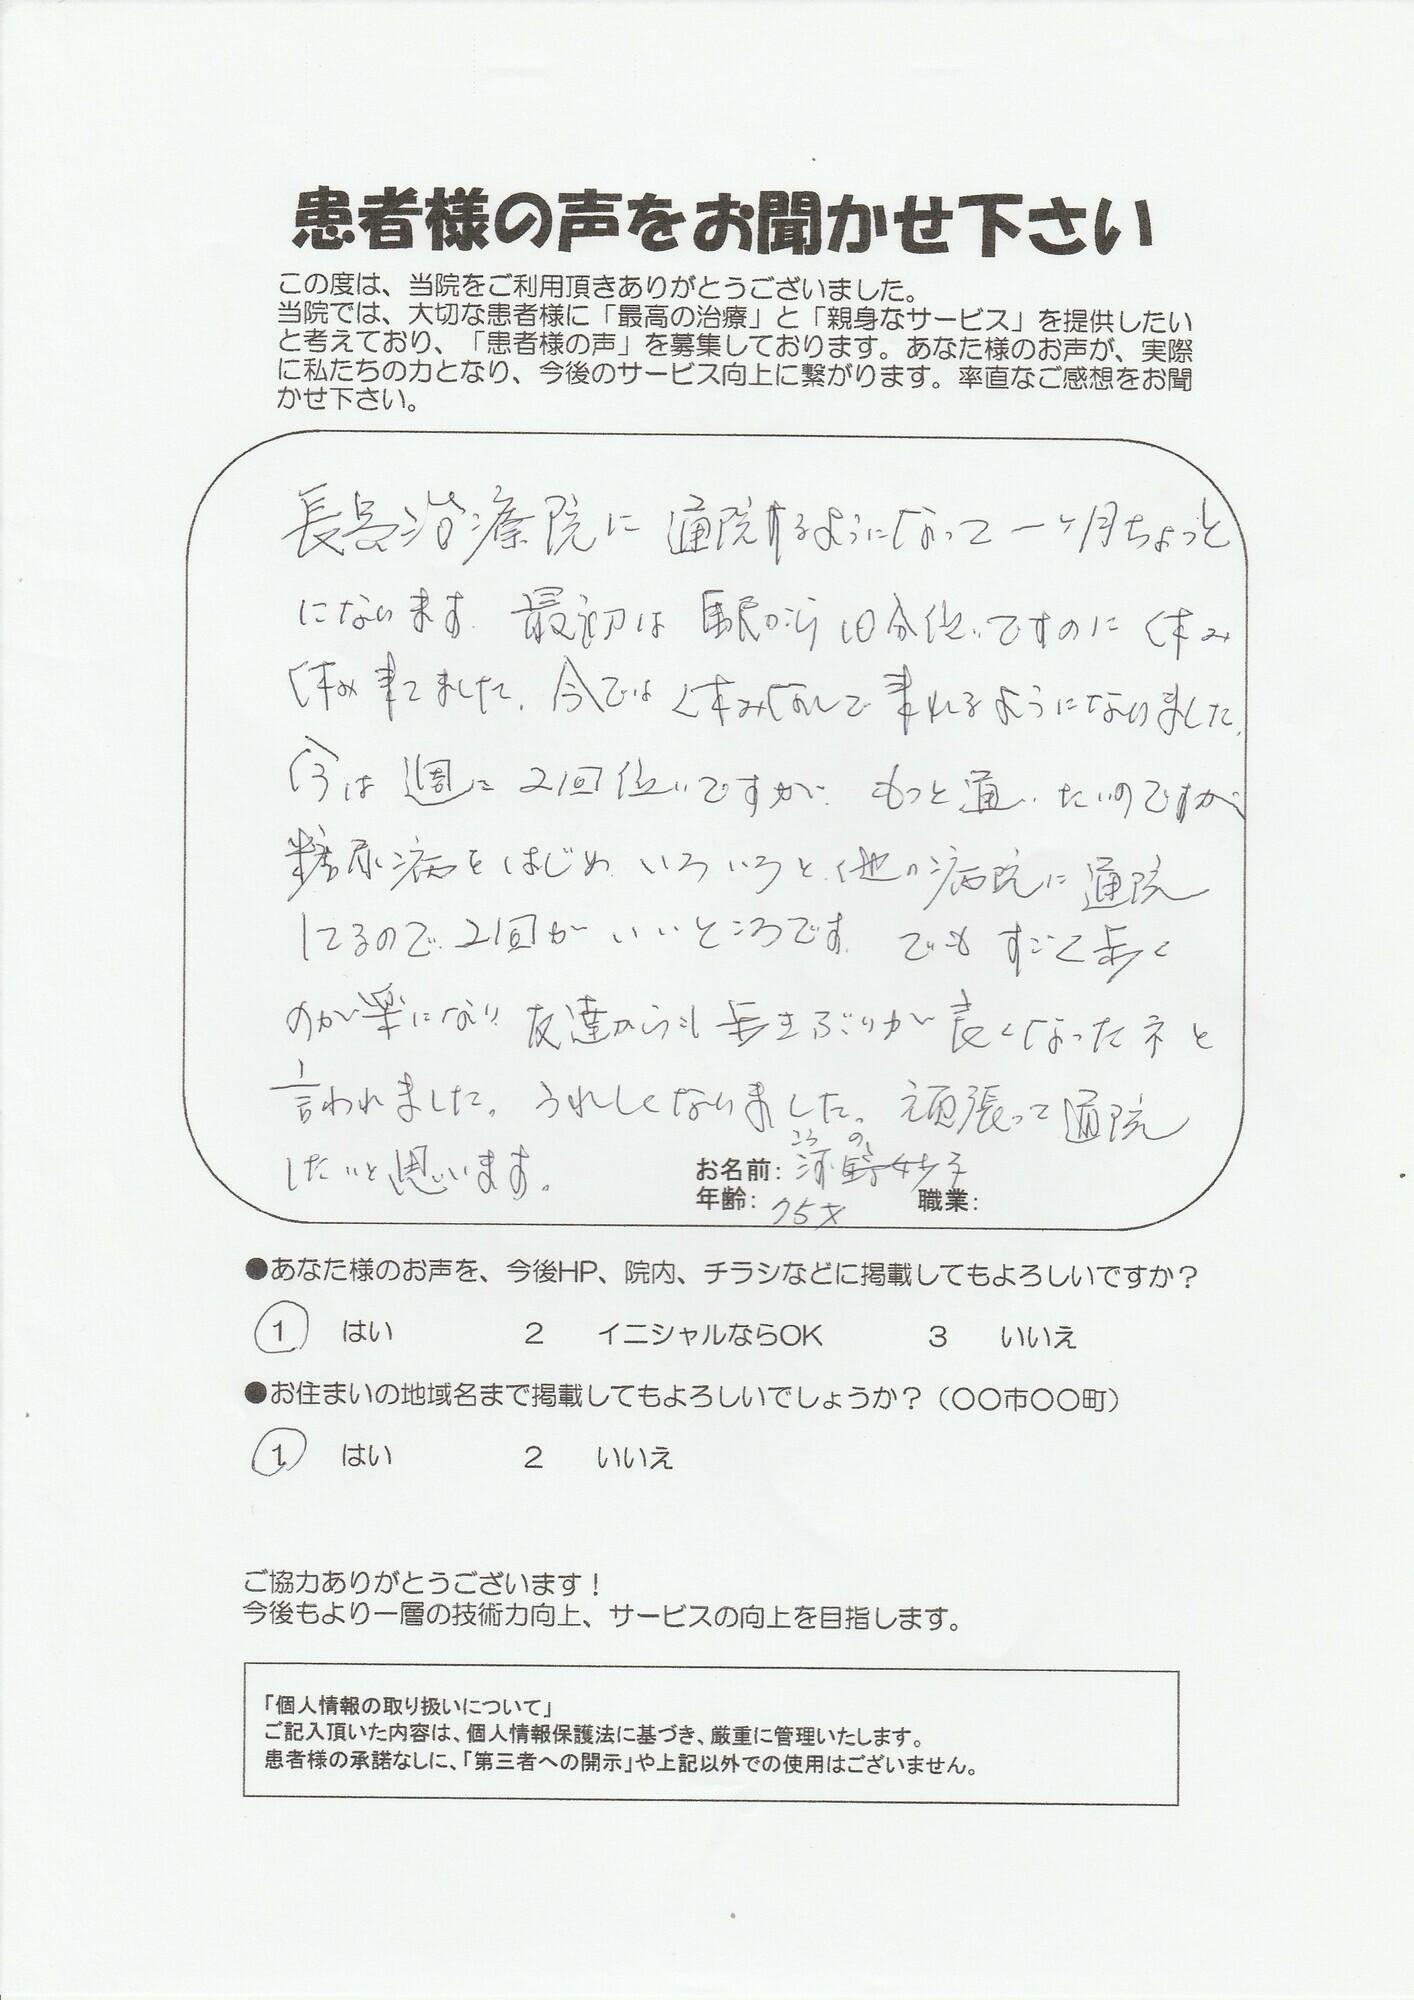 患者様の声をお聞かせ下さい
この度は、当院をご利用頂きありがとうございました。
当院では、大切な患者様に「最高の治療」と「親身なサービス」を提供したい
と考えており、「患者様の声」を募集しております。あなた様のお声が、実際
に私たちの力となり、今後のサービス向上に繋がります。率直なご感想をお聞
かせ下さい。
長島治療院に通院するようになって一ヶ月ちょっと
になります。最初は駅から10分位いですのに休み
休み来てました。今では休みなしで来れるようになりました。
今は週に2回位いですが、もっと通いたいのですが
糖尿病をはじめいろいろと他の病院に通院
してるので、2回がいいところです。でもすごく歩く
のが楽になり友達からも歩きぶりが良くなったネと
言われました。うれしくなりました。頑張って通院
したいと思います。
こうの
お名前:河野妙子
年齢:75才 職業:
●あなた様のお声を、今後HP、院内、チラシなどに掲載してもよろしいですか？
1 はい 2 イニシャルならOK 3 いいえ
●お住まいの地域名まで掲載してもよろしいでしょうか？（〇〇市〇〇町）
1 はい 2 いいえ
ご協力ありがとうございます！
今後もより一層の技術力向上、サービスの向上を目指します。
「個人情報の取り扱いについて」
ご記入頂いた内容は、個人情報保護法に基づき、厳重に管理いたします。
患者様の承諾なしに、「第三者への開示」や上記以外での使用はございません。